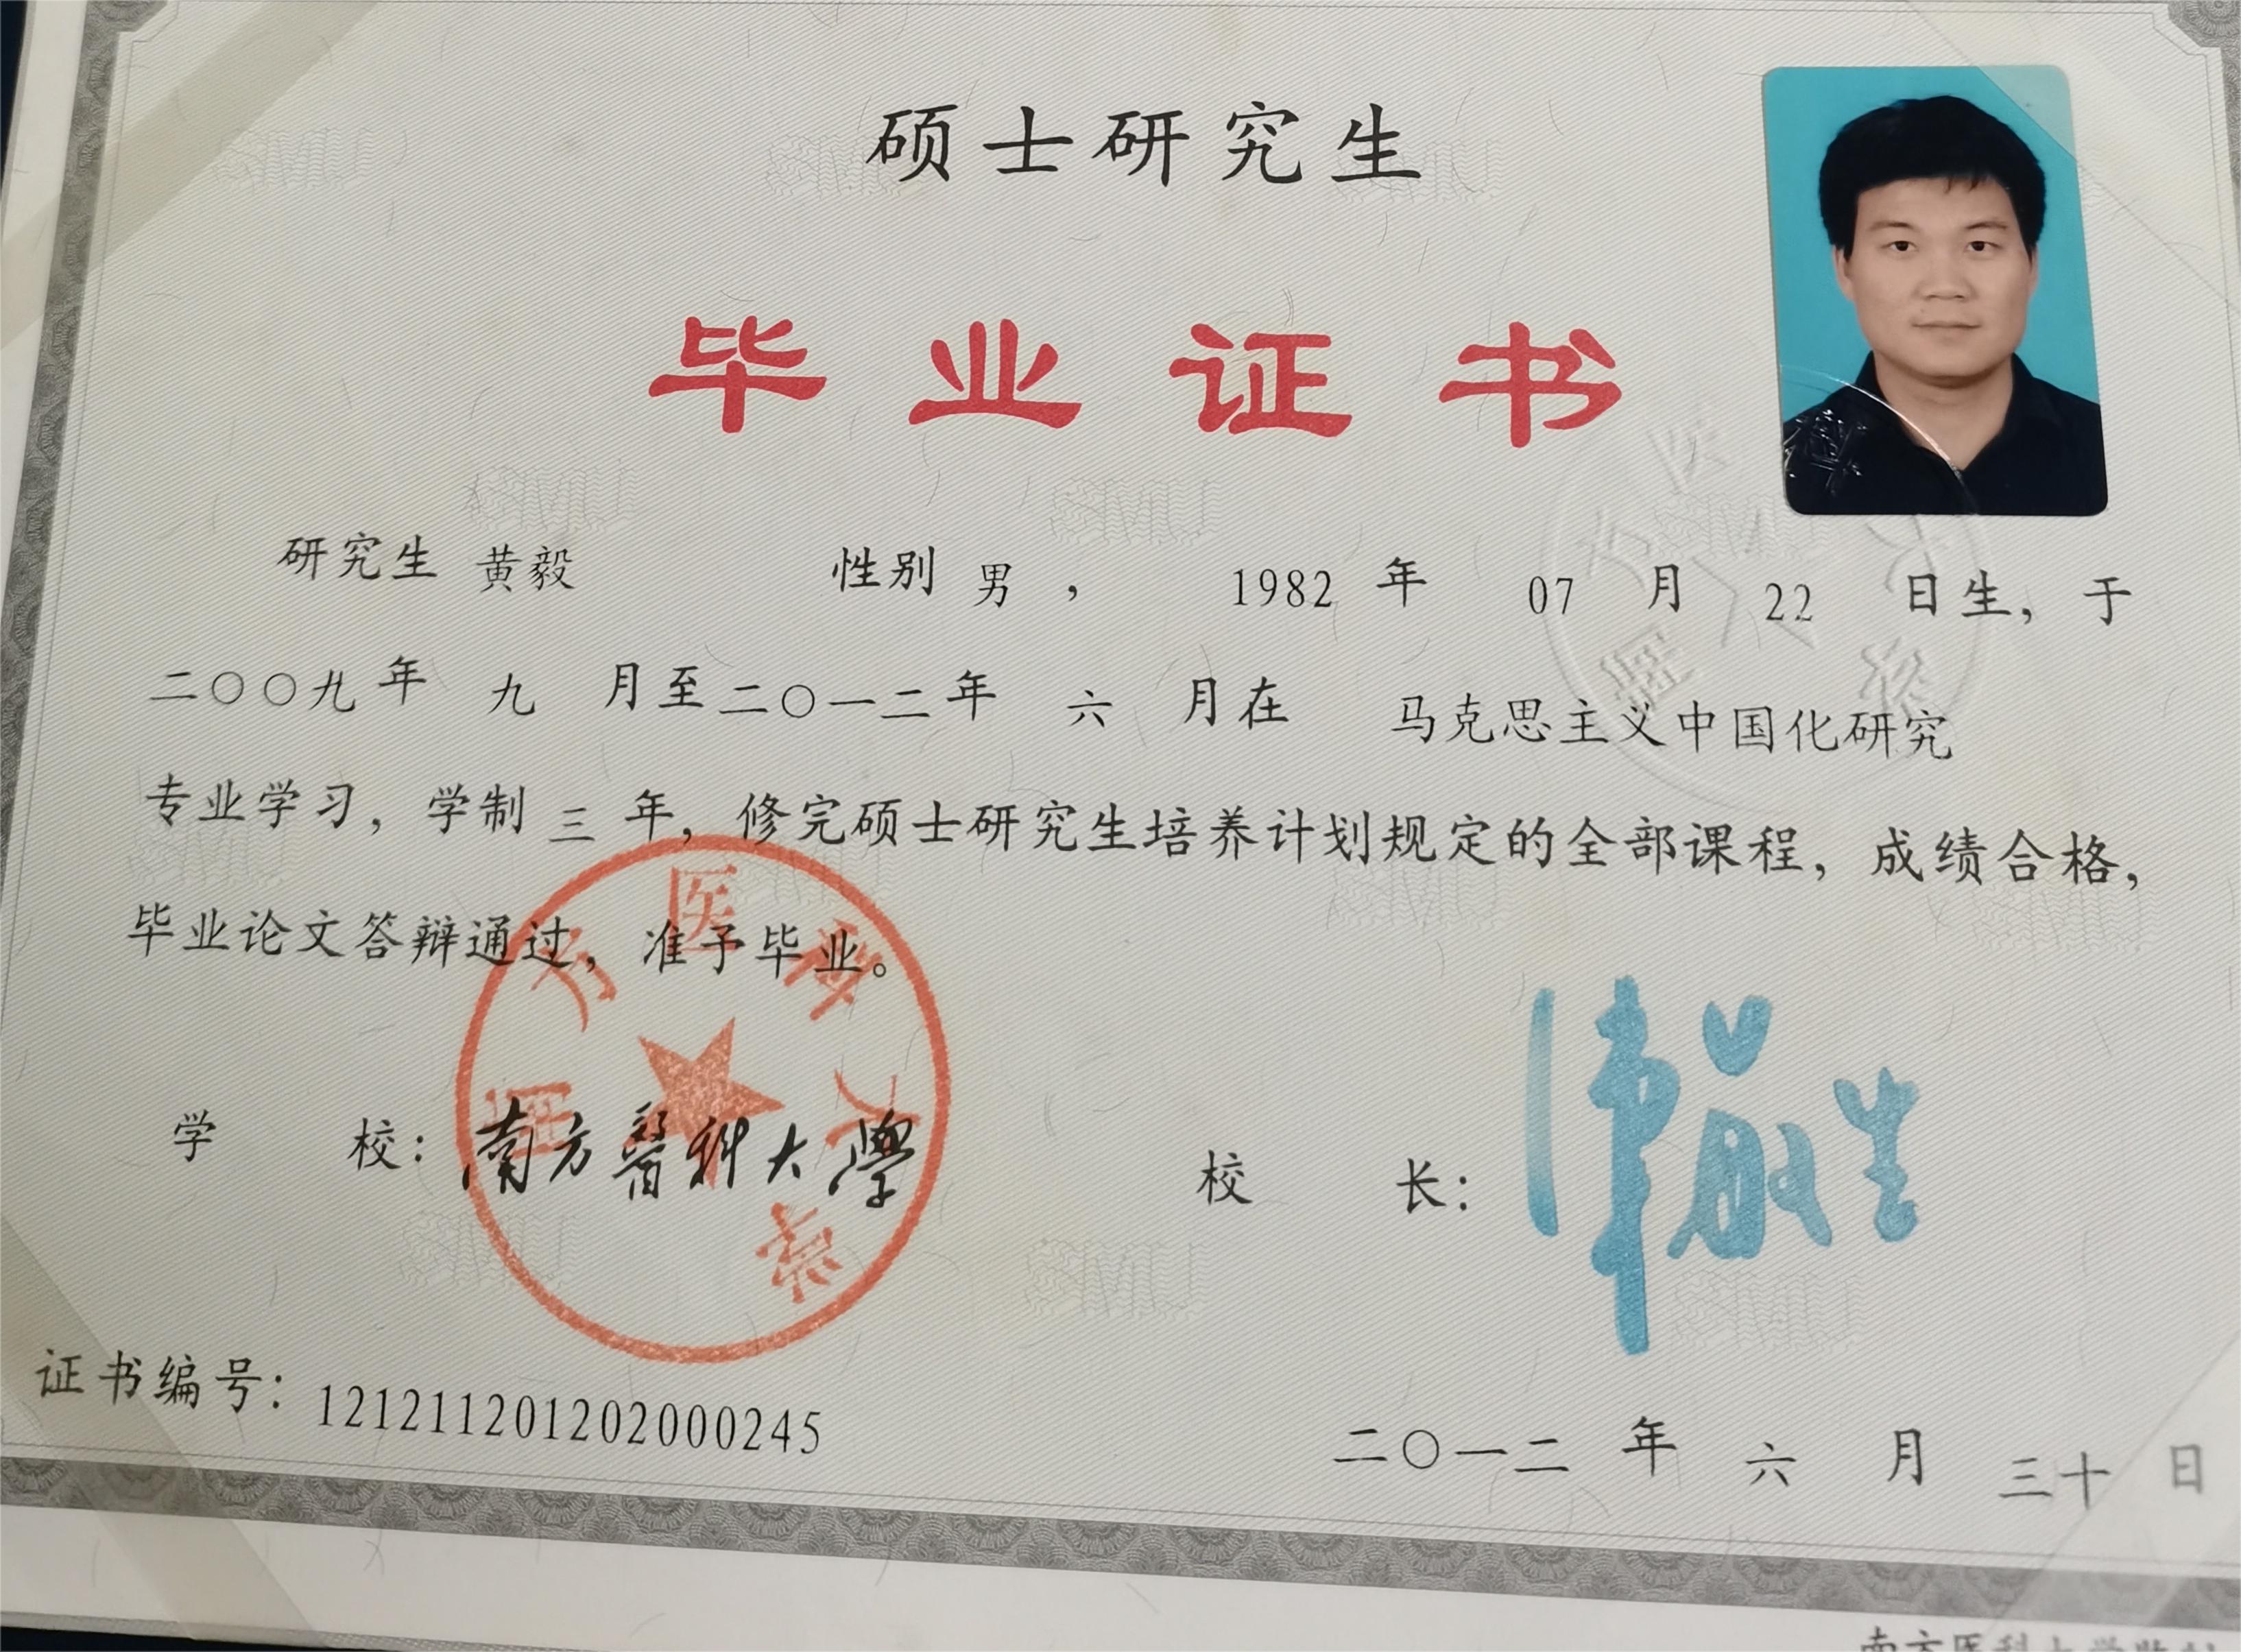 硕士研究生
毕业证书
研究生 黄毅 性别 男 ， 1982 年 07 月 22 日生，于
二〇〇九年 九 月至二〇一二年 六 月在 马克思主义中国化研究
专业学习，学制 三 年，修完硕士研究生培养计划规定的全部课程，成绩合格，
毕业论文答辩通过，准予毕业。
南方医科大学
学 校：南方醫科大學
校 长：
证书编号：121211201202000245
二〇一二 年 六 月 三十 日
SMU